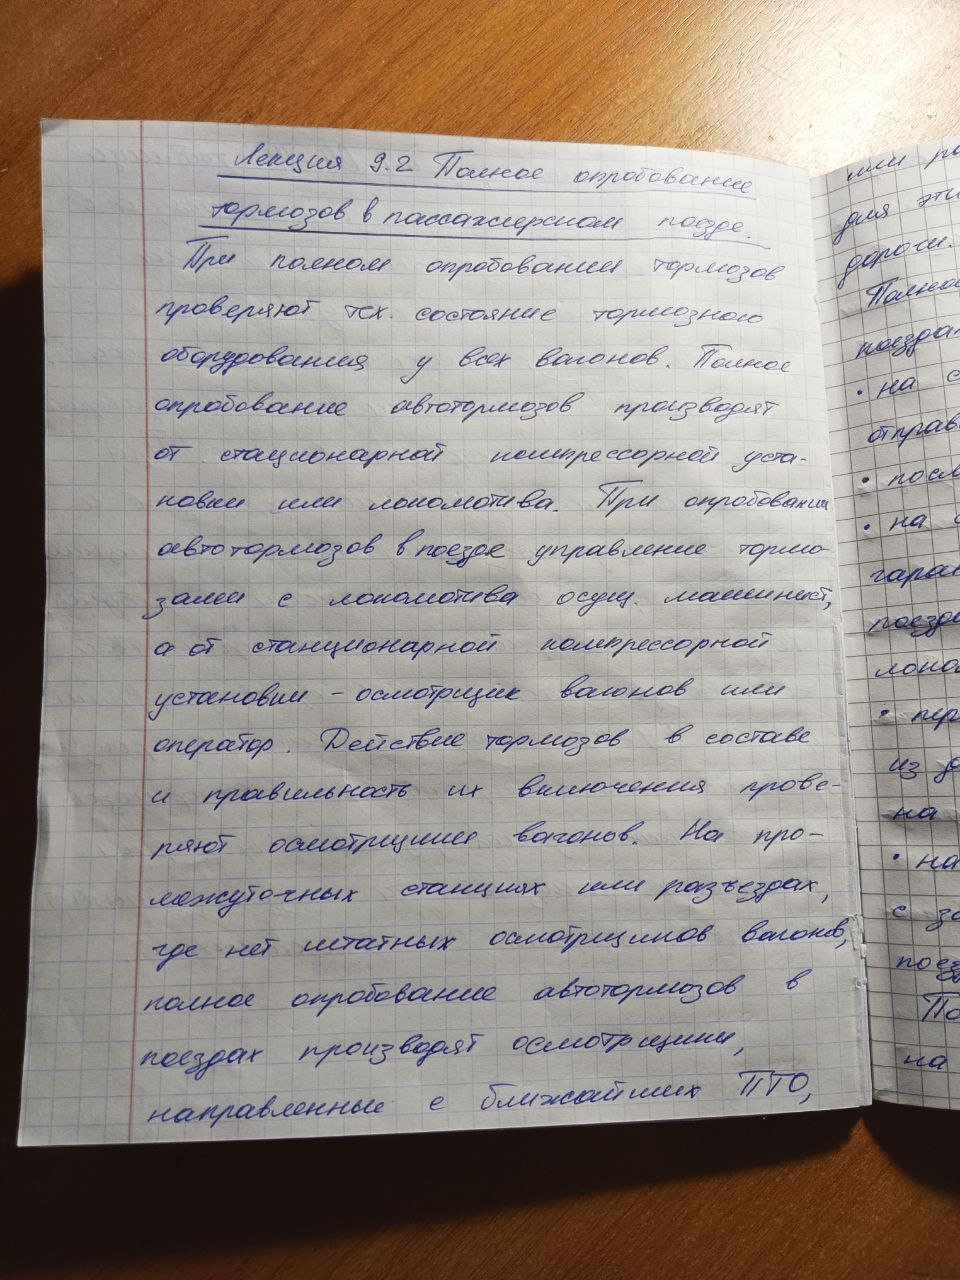 Лекция 9.2 Полное опробование
тормозов в пассажирском поезде.
При полном опробовании тормозов
проверяют тех. состояние тормозного
оборудования у всех вагонов. Полное
опробование автотормозов производят
от стационарной компрессорной уста-
новки или локомотива. При опробовании
автотормозов в поезде управление тормо-
зами с локомотива осущ. машинист,
а от станционарной компрессорной
установки - осмотрщик вагонов или
оператор. Действие тормозов в составе
и правильность их включения прове-
ряют осмотрщики вагонов. На про-
межуточных станциях или разъездах,
где нет штатных осмотрщиков вагонов,
полное опробование автотормозов в
поездах производят осмотрщики,
направленные с ближайших ПТО,
или
для эти
дороги.
Полное
поезда
• на с
отправ
• посл
• на
гаран
поезда
локом
• пер
из
на
• на
с
поезд
По
на